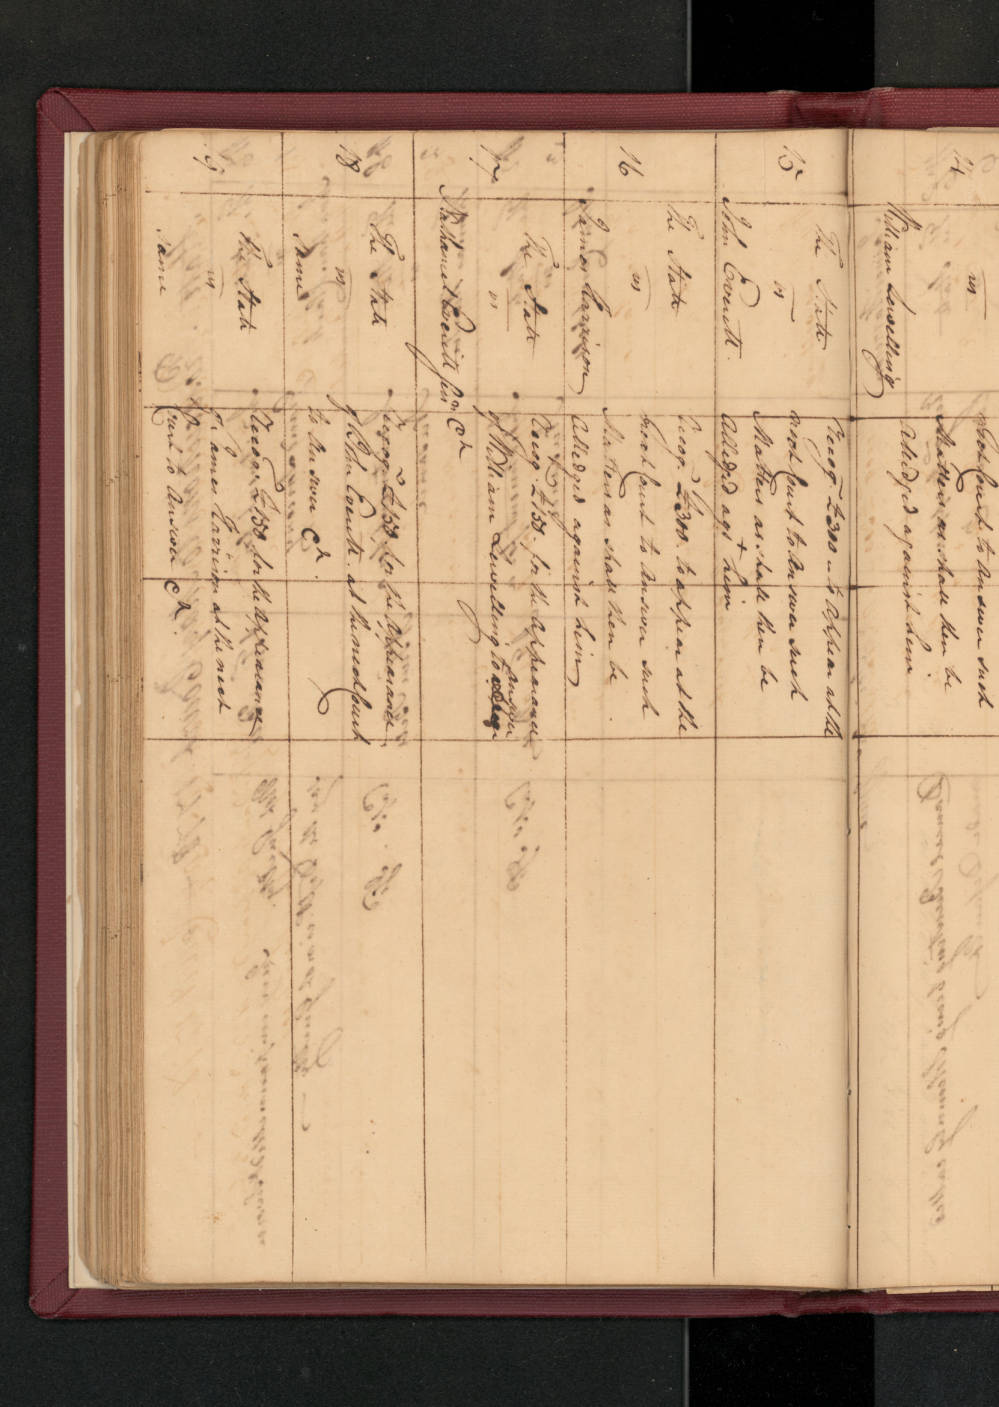 14
vs
William Lewelling
next Court to Answer such
Matters as shall then be
Alledged against him
15
The State
vs
John Everett
Recog. £300 to appear at the
next Court to Answer such
Matters as shall then be
Alledged agst him
16
The State
vs
James Harrison
Recog. £300. to appear at the
next Court to Answer such
Matters as shall then be
Alledged against him
17
The State
vs
Nathaniel Everitt Senr
Recog. £150. for the Appearance
of William Lewelling to answer
&c
18
The State
vs
same
Recogo £150 for the Appearance
of John Everett. at the next Court
to Answer &c
19
The State
vs
same
Recog. £150 for the Appearance
of James Harrison at the next
Court to Answer &c